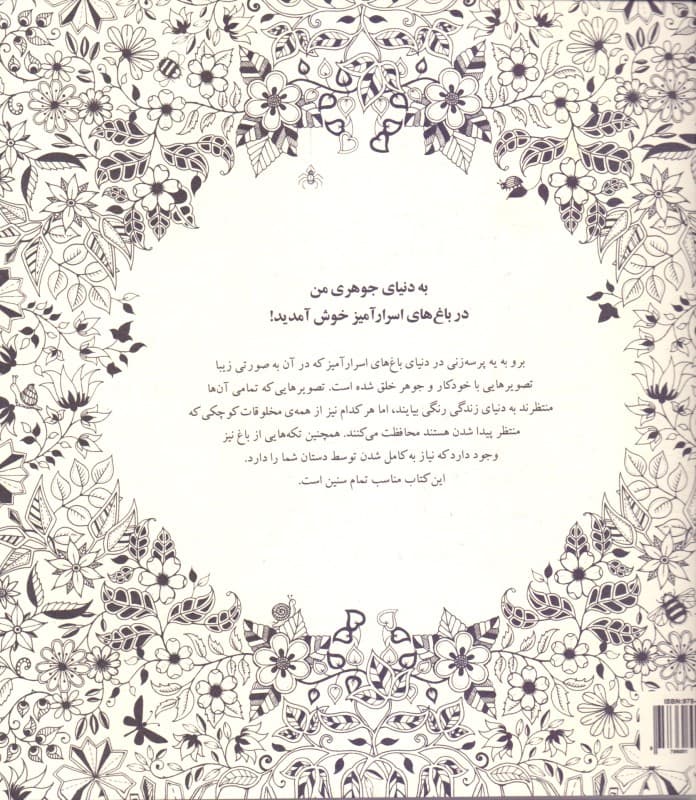 به دنیای جوهری من
در باغ‌های اسرارآمیز خوش آمدید!
برو به یه پرسه‌زنی در دنیای باغ‌های اسرارآمیز که در آن به صورتی زیبا
تصویرهایی با خودکار و جوهر خلق شده است. تصویرهایی که تمامی آن‌ها
منتظرند به دنیای زندگی رنگی بیایند، اما هر کدام نیز از همه‌ی مخلوقات کوچکی که
منتظر پیدا شدن هستند محافظت می‌کنند. همچنین تکه‌هایی از باغ نیز
وجود دارد که نیاز به کامل شدن توسط دستان شما را دارد.
این کتاب مناسب تمام سنین است.
ISBN:978-